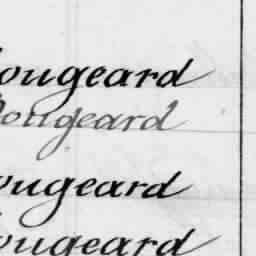 ougeard
ougeard
ougeard
ougeard